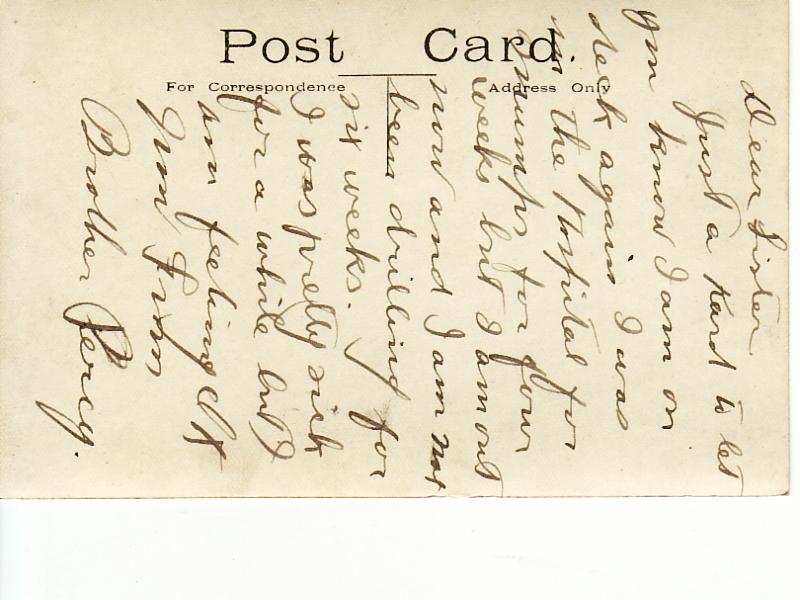 Post Card.
For Correspondence
Address Only
Dear Sister
Just a Kard to let
you know I am on
deck again I was
in the Hospital for
mumps for four
weeks but I am out
now and I am not
been drilling for
six weeks.
I was pretty sick
for a while but I
am feeling
from
Brother Percy.